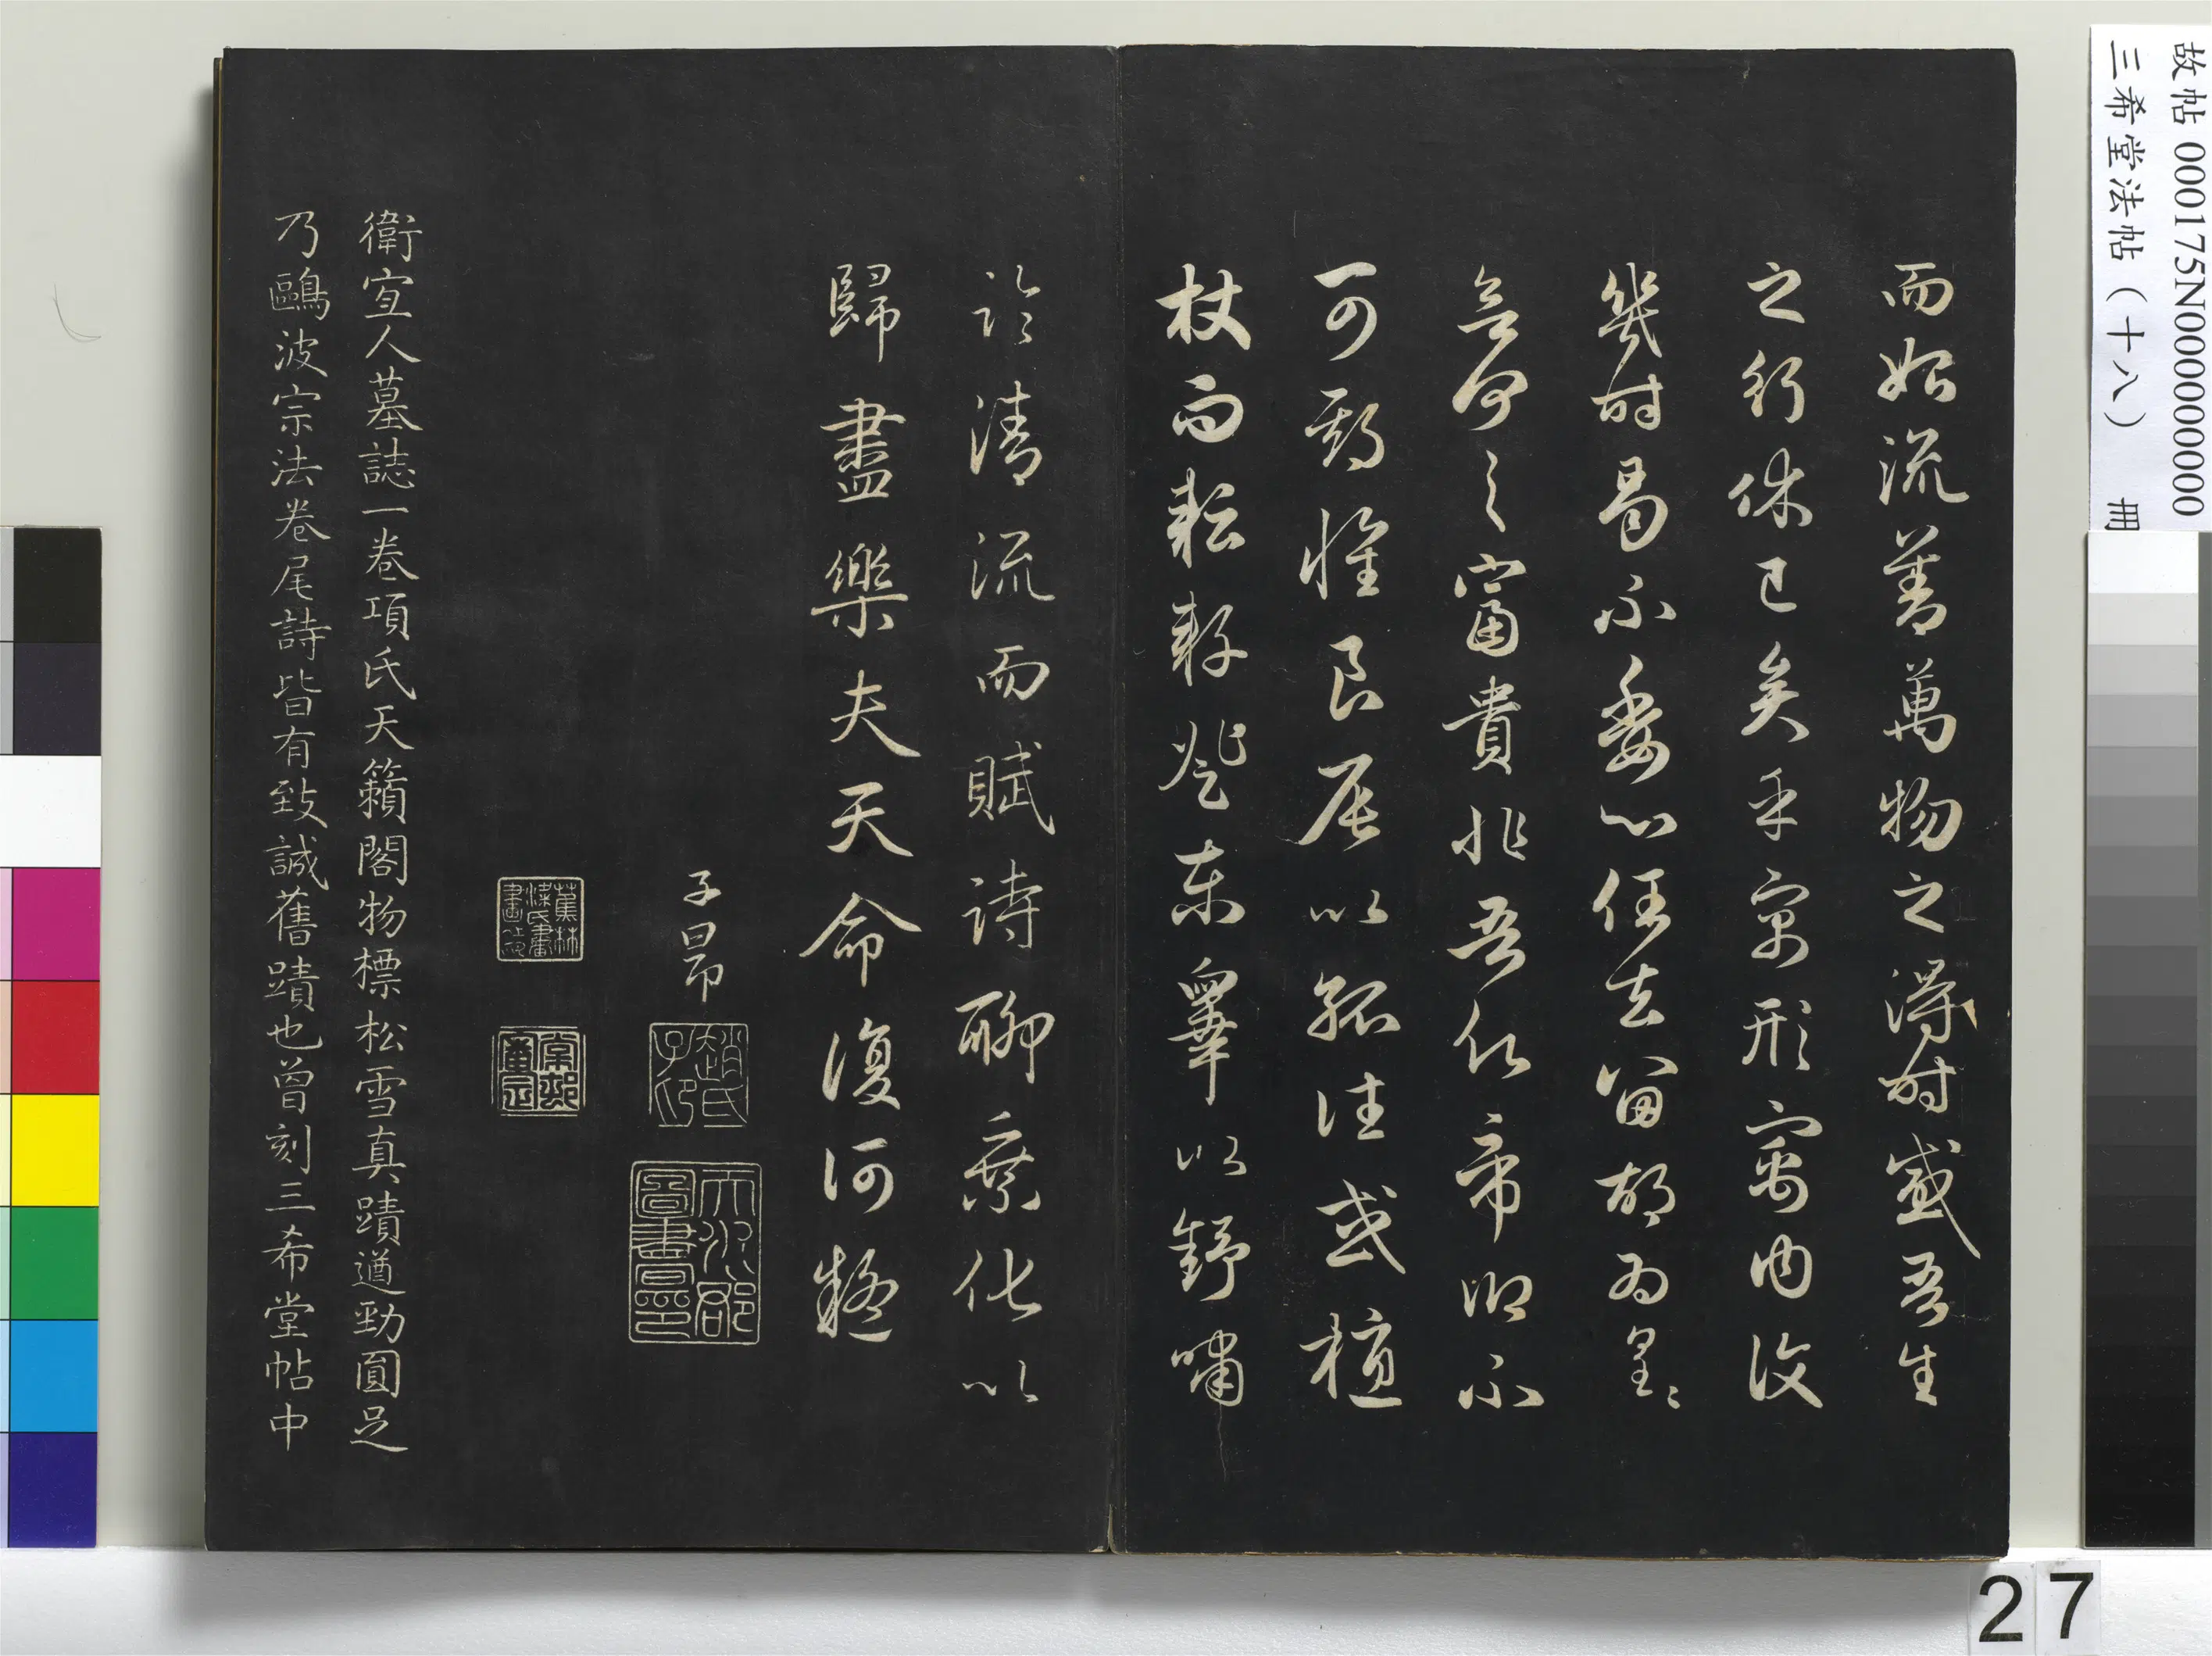 故帖 000175N000000000
三希堂法帖（十八） 冊
而始流善萬物之得時感吾生
之行休已矣乎寓形寓内復
幾時曷不委心任去留胡為皇〻
欲何之富貴非吾願帝鄉不
可期懷良辰以孤往或植
杖而耘耔登東皋以舒嘯
臨清流而賦詩聊乘化以
歸盡樂夫天命復何疑
子昂
趙氏子昂
天水郡圖書印
蕉林梁氏書畫之印
棠邨審定
衛宜人墓誌一卷項氏天籟閣物標松雪真蹟遒勁圓足
乃鷗波宗法卷尾詩皆有致誠舊蹟也曾刻三希堂帖中
27